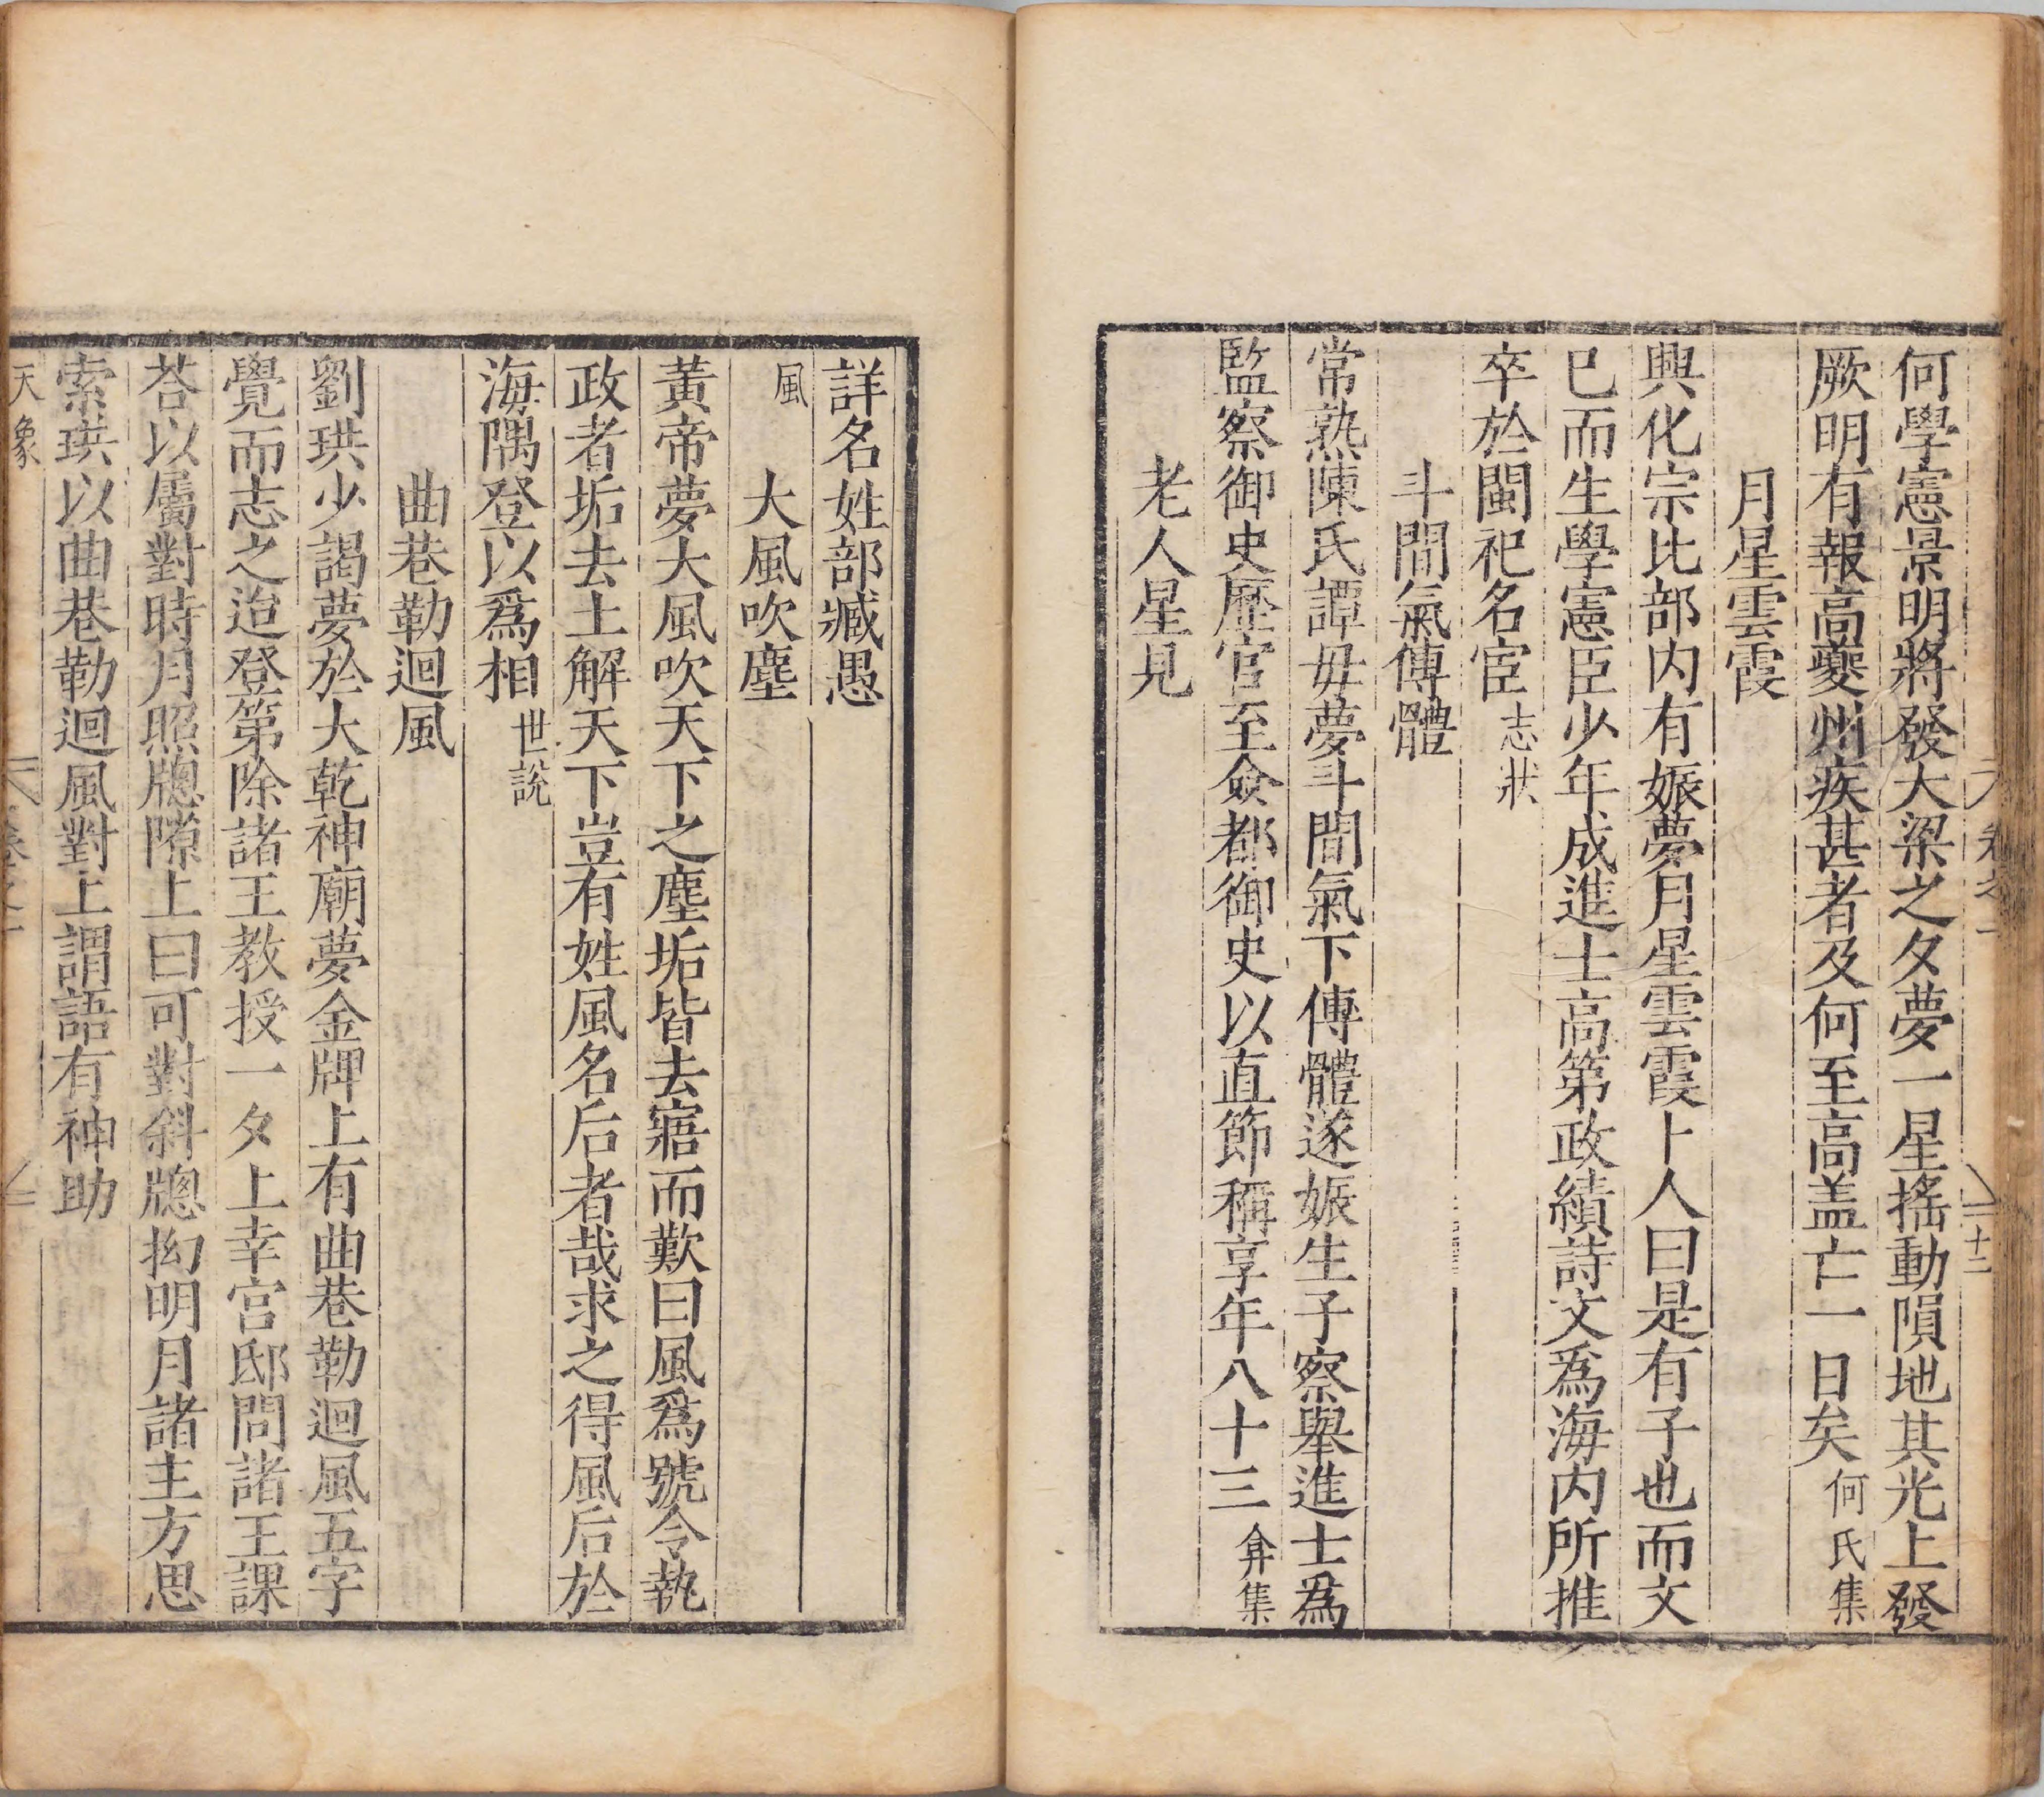 何學憲景明將發大梁之夕夢一星搖動隕地其光上發
厥明有報高夔州疾甚者及何至高盖亡一日矣何氏集
月星雲霞
興化宗比部内有娠夢月星雲霞卜人曰是有子也而文
已而生學憲臣少年成進士高第政績詩文爲海内所推
卒於閩祀名宦志狀
斗間氣傳體
常熟陳氏譚毋夢斗間氣下傳體遂娠生子察舉進士爲
監察御史歷官至僉都御史以直節稱享年八十三弇集
老人星見
詳名姓部臧愚
風
大風吹塵
黃帝夢大風吹天下之塵垢皆去寤而歎曰風爲號令執
政者垢去土解天下豈有姓風名后者哉求之得風后於
海隅登以爲相世説
曲巷勒迴風
劉珙少謁夢於大乾神廟夢金牌上有曲巷勒迴風五字
覺而志之迨登第除諸王教授一夕上幸宮邸問諸王課
荅以屬對時月照牕隙上曰可對斜牕拘明月諸主方思
索珙以曲巷勒迴風對上謂語有神助
天象 卷之一